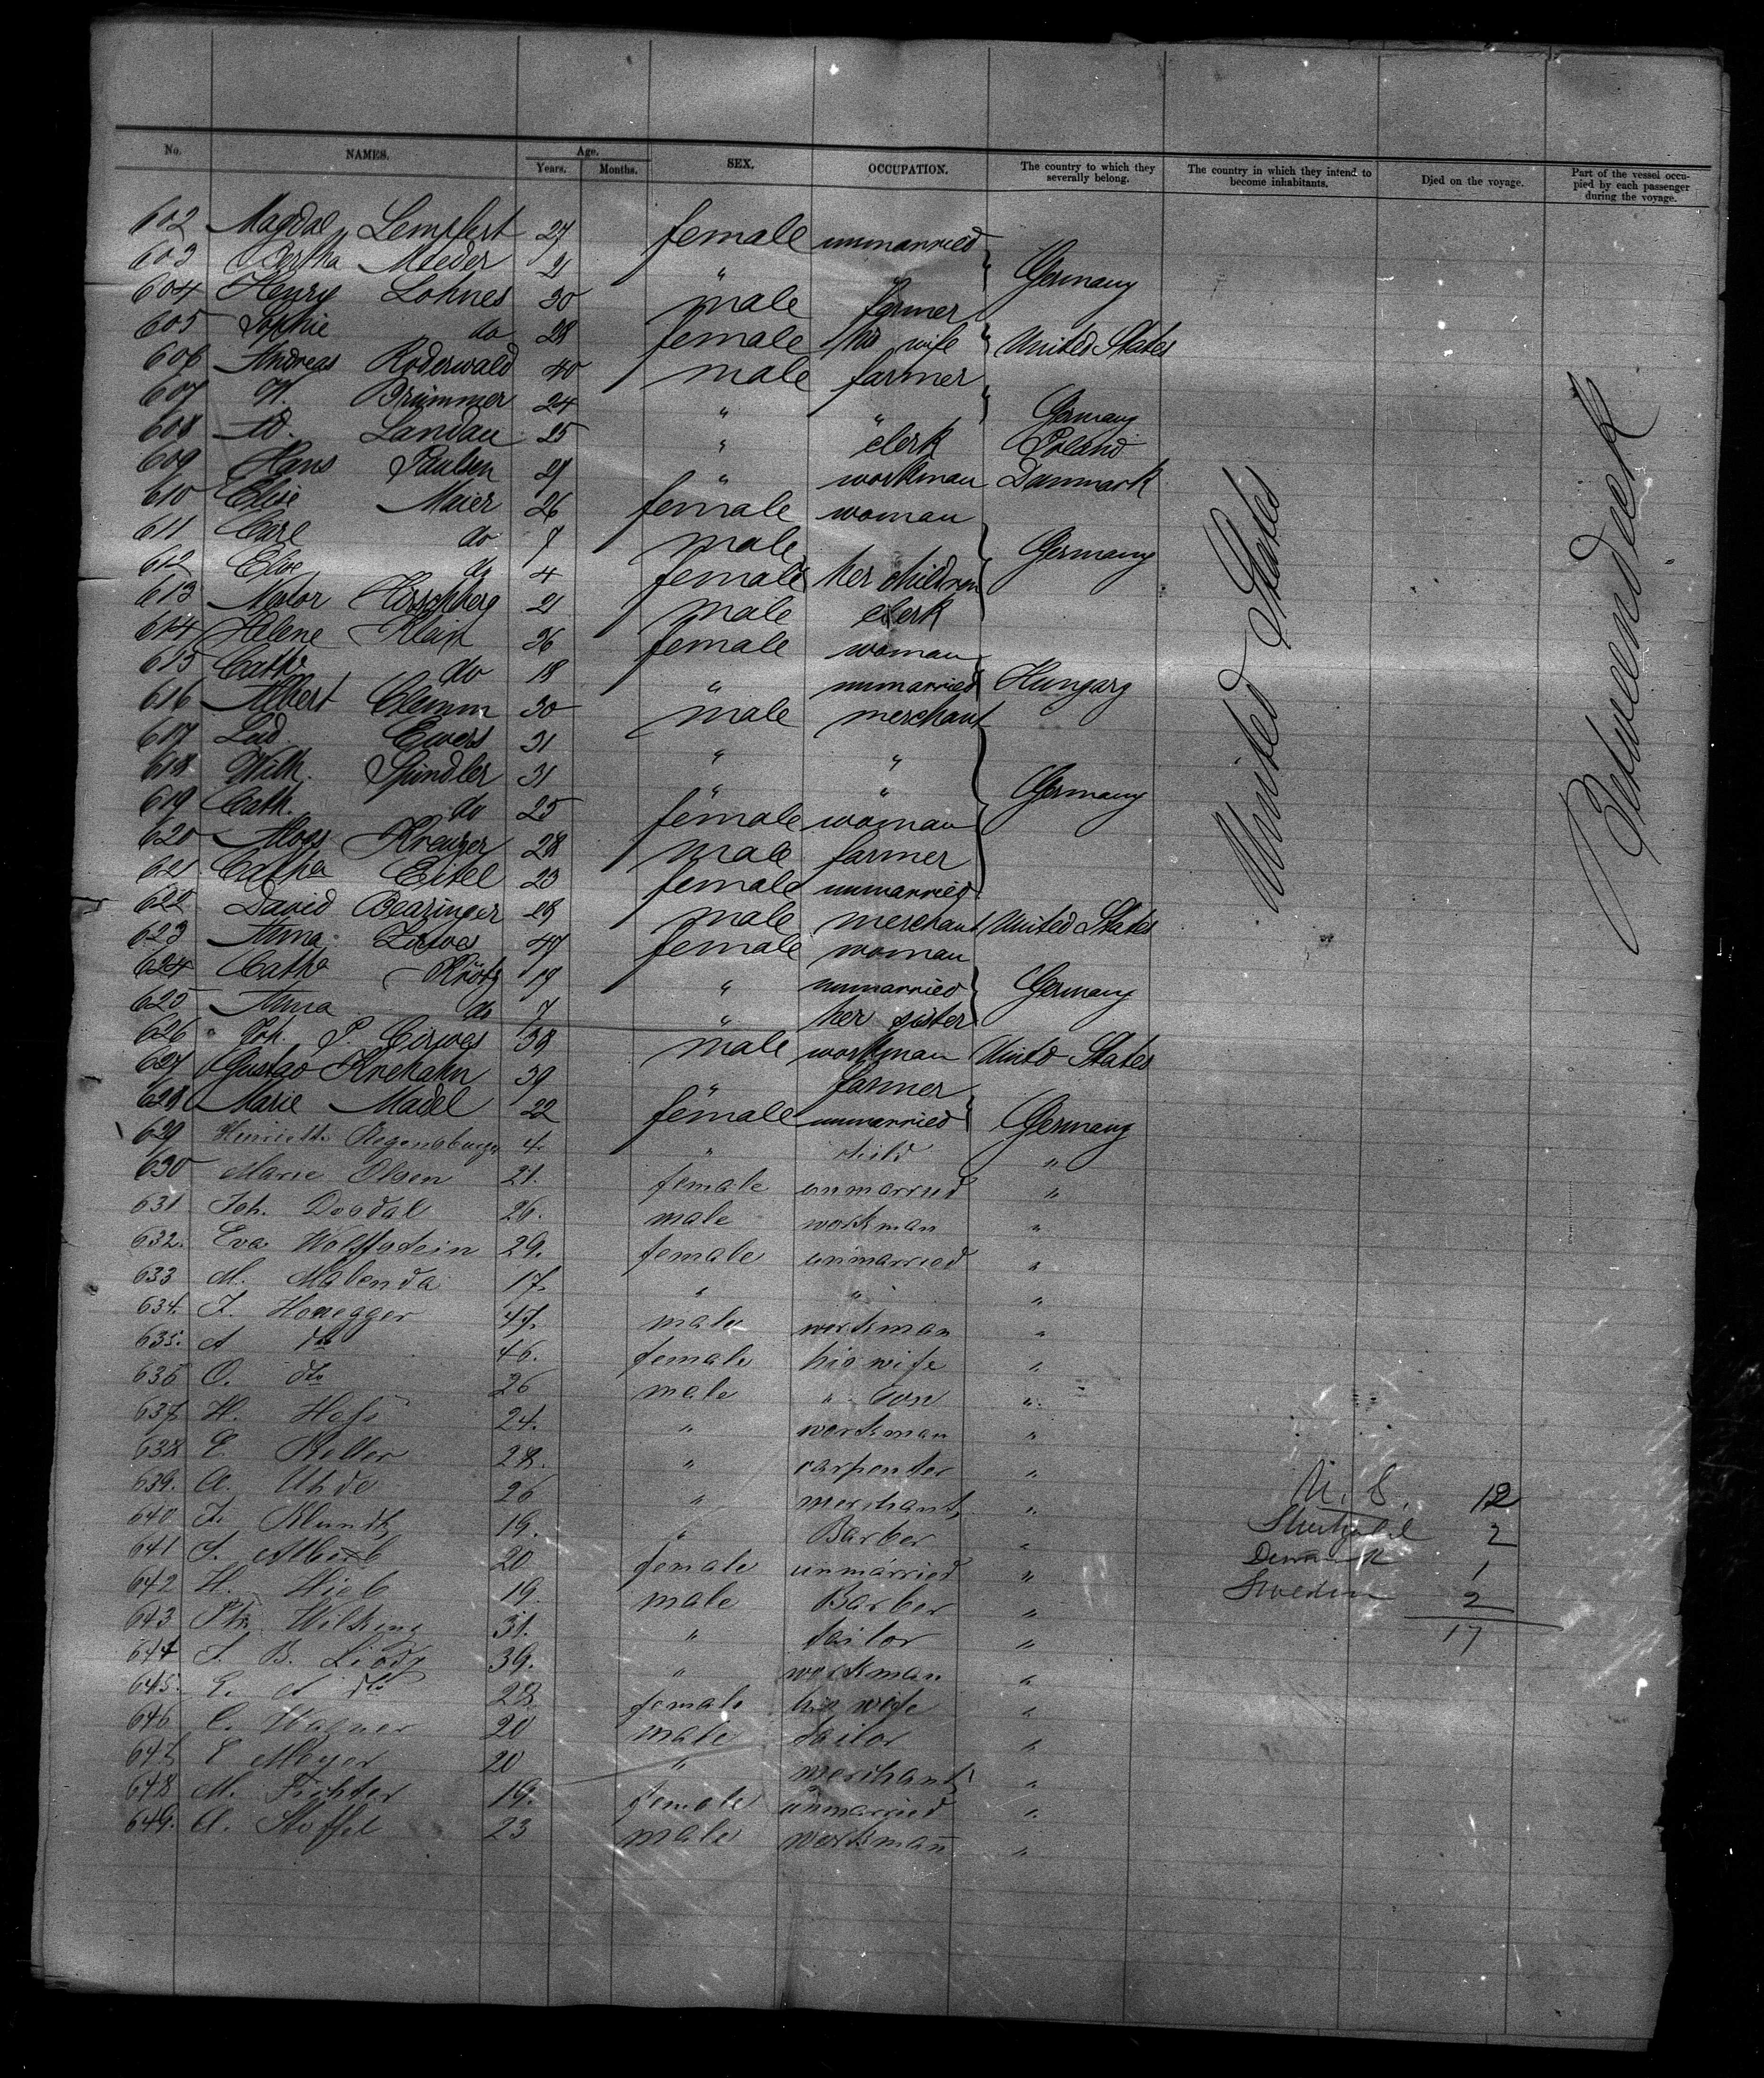 No. NAMES. Age. Years. Months. SEX. OCCUPATION. The country to which they severally belong. The country in which they intend to become inhabitants. Died on the voyage. Part of the vessel occupied by each passenger during the voyage.
602 Magdal. Lempfert 27 female unmarried
603 Bertha Meeder 21 " " Germany
604 Henry Lohnes 30 male farmer
605 Sophie do 28 female his wife United States
606 Andreas Roderwald 40 male farmer
607 H. Brümmer 24 " " Germany
608 Ad. Landau 25 " clerk Poland
609 Hans Paulsen 27 " workman Danmark
610 Elise Maier 26 female woman
611 Carl do 7 male Germany
612 Elise do 4 female her children
613 Hirschberg 21 male clerk
614 Helene Klein 26 female woman
615 Cath. do 18 " unmarried Hungary
616 Albert Clemm 30 male merchant
617 Lud. Ewers 31 " "
618 Wilh. Spindler 31 " " Germany
619 Cath. do 25 female woman
620 Aloes Kreuzer 28 male farmer
621 Catha Eitel 23 female unmarried
622 David Beazinger 28 male merchant United States
623 Anna 47 female woman
624 Catha 19 " unmarried Germany
625 Anna do 7 " her sister
626 Joh. P. 38 male workman United States
627 Gustav Krehahn 39 " farmer
628 Marie Madel 22 female unmarried Germany
629 Henriette Regensburger 4. " child "
630 Marie Olsen 21. female unmarried "
631 Joh. Dosdal 26. male workman "
632. Eva Wolffstein 29. female unmarried "
633 M. Mabenda 17. " " "
634. J. Honegger 47. male workman "
635. A dto 46. female his wife "
636 O. dto 26 male " son "
637 H. Hess 24. " workman "
638 E. Keller 28. " carpenter "
639. A. Uhde 26 " merchant "
640 J. Klundt 19. " Barber "
641 S. 20 female unmarried "
642 H. Hieb 19. male Barber "
643 Ph. Wilkening 31. " tailor "
644 J. B. 39. " workman "
645. E. A dto 28 female his wife "
646 C. Wagner 20 male tailor "
647 E Meyer 20 " merchant "
648 M. Fichter 19. female unmarried "
649. A. Stoffel 23 male workman "
United States
Betweendeck
U. S. 12
2
Denmark 1
Sweden 2
17